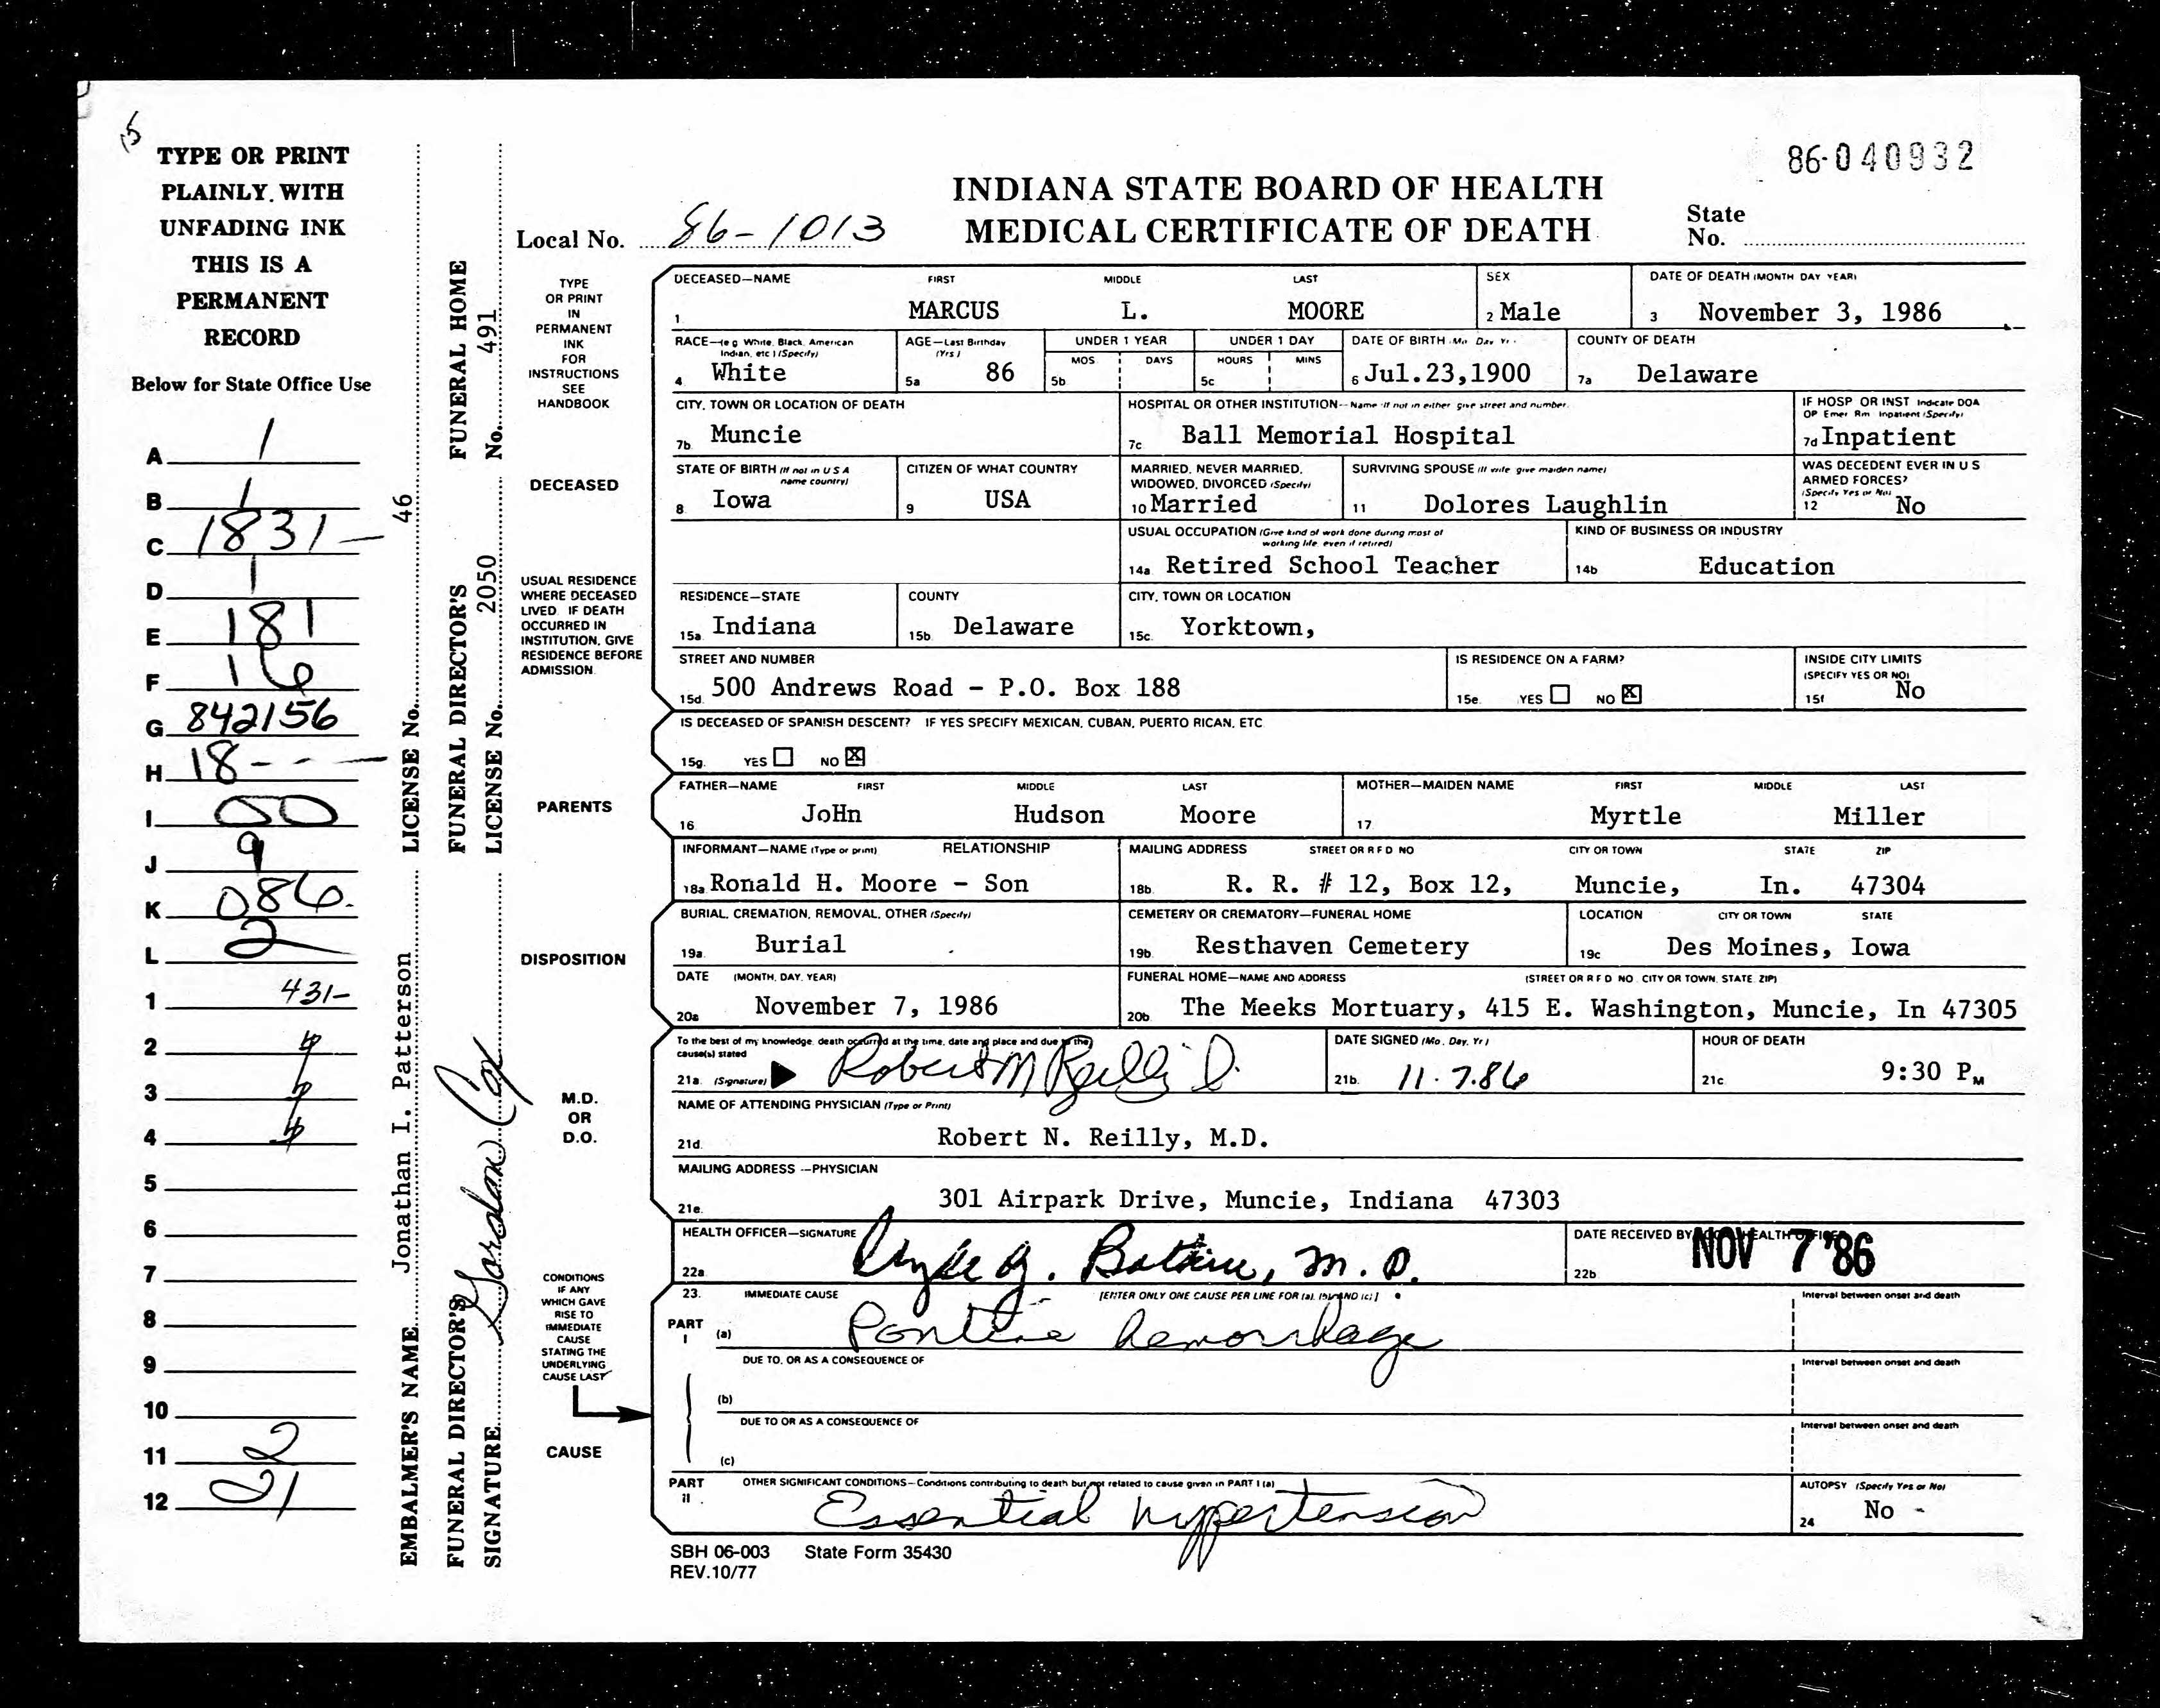 TYPE OR PRINT
PLAINLY, WITH
UNFADING INK
THIS IS A
PERMANENT
RECORD
Below for State Office Use
A 1
B 1
C 1831-
D 1
E 181
F 16
G 842156
H 18---
I 00
J 9
K 086.
L 2
1 431-
2
3
4
5
6
7
8
9
10
11 2
12 21
EMBALMER'S NAME Jonathan I. Patterson LICENSE No. 46
FUNERAL DIRECTOR'S SIGNATURE Gordon Cox FUNERAL DIRECTOR'S LICENSE No. 2050 FUNERAL HOME No. 491
86-040932
INDIANA STATE BOARD OF HEALTH
MEDICAL CERTIFICATE OF DEATH
Local No. 86-1013
State
No.
TYPE
OR PRINT
IN
PERMANENT
INK
FOR
INSTRUCTIONS
SEE
HANDBOOK
DECEASED
USUAL RESIDENCE
WHERE DECEASED
LIVED. IF DEATH
OCCURRED IN
INSTITUTION, GIVE
RESIDENCE BEFORE
ADMISSION.
PARENTS
DISPOSITION
M.D.
OR
D.O.
CONDITIONS
IF ANY
WHICH GAVE
RISE TO
IMMEDIATE
CAUSE
STATING THE
UNDERLYING
CAUSE LAST
CAUSE
DECEASED—NAME FIRST MIDDLE LAST SEX DATE OF DEATH (MONTH DAY YEAR)
1 MARCUS L. MOORE 2 Male 3 November 3, 1986
RACE—(e g White, Black, American Indian, etc ) (Specify) AGE—Last Birthday (Yrs ) UNDER 1 YEAR UNDER 1 DAY DATE OF BIRTH (Mo Day Yr) COUNTY OF DEATH
MOS DAYS HOURS MINS
4 White 5a 86 5b 5c 6 Jul.23,1900 7a Delaware
CITY, TOWN OR LOCATION OF DEATH HOSPITAL OR OTHER INSTITUTION—Name (If not in either give street and number) IF HOSP OR INST Indicate DOA OP Emer Rm Inpatient (Specify)
7b. Muncie 7c Ball Memorial Hospital 7d Inpatient
STATE OF BIRTH (If not in U S A name country) CITIZEN OF WHAT COUNTRY MARRIED, NEVER MARRIED, WIDOWED, DIVORCED (Specify) SURVIVING SPOUSE (If wife give maiden name) WAS DECEDENT EVER IN U S ARMED FORCES? (Specify Yes or No)
8. Iowa 9 USA 10 Married 11 Dolores Laughlin 12 No
USUAL OCCUPATION (Give kind of work done during most of working life, even if retired) KIND OF BUSINESS OR INDUSTRY
14a Retired School Teacher 14b Education
RESIDENCE—STATE COUNTY CITY, TOWN OR LOCATION
15a. Indiana 15b. Delaware 15c. Yorktown,
STREET AND NUMBER IS RESIDENCE ON A FARM? INSIDE CITY LIMITS (SPECIFY YES OR NO)
15d. 500 Andrews Road - P.O. Box 188 15e. YES NO X 15f No
IS DECEASED OF SPANISH DESCENT? IF YES SPECIFY MEXICAN, CUBAN, PUERTO RICAN, ETC
15g. YES NO X
FATHER—NAME FIRST MIDDLE LAST MOTHER—MAIDEN NAME FIRST MIDDLE LAST
16 JoHn Hudson Moore 17 Myrtle Miller
INFORMANT—NAME (Type or print) RELATIONSHIP MAILING ADDRESS STREET OR R F D NO CITY OR TOWN STATE ZIP
18a Ronald H. Moore - Son 18b. R. R. # 12, Box 12, Muncie, In. 47304
BURIAL, CREMATION, REMOVAL, OTHER (Specify) CEMETERY OR CREMATORY—FUNERAL HOME LOCATION CITY OR TOWN STATE
19a. Burial 19b. Resthaven Cemetery 19c Des Moines, Iowa
DATE (MONTH, DAY, YEAR) FUNERAL HOME—NAME AND ADDRESS (STREET OR R F D NO. CITY OR TOWN, STATE ZIP)
20a November 7, 1986 20b. The Meeks Mortuary, 415 E. Washington, Muncie, In 47305
To the best of my knowledge, death occurred at the time, date and place and due to the cause(s) stated DATE SIGNED (Mo. Day, Yr) HOUR OF DEATH
21a. (Signature) Robert M Reilly 21b. 11.7.86 21c 9:30 PM
NAME OF ATTENDING PHYSICIAN (Type or Print)
21d. Robert N. Reilly, M.D.
MAILING ADDRESS—PHYSICIAN
21e. 301 Airpark Drive, Muncie, Indiana 47303
HEALTH OFFICER—SIGNATURE DATE RECEIVED BY HEALTH
22a. Botkin, M.D. 22b. NOV 7 '86
23. IMMEDIATE CAUSE [ENTER ONLY ONE CAUSE PER LINE FOR (a), (b) AND (c)] Interval between onset and death
PART I (a) Pontine hemorrhage
DUE TO, OR AS A CONSEQUENCE OF Interval between onset and death
(b)
DUE TO OR AS A CONSEQUENCE OF Interval between onset and death
(c)
PART II OTHER SIGNIFICANT CONDITIONS—Conditions contributing to death but not related to cause given in PART I (a) AUTOPSY (Specify Yes or No)
Essential hypertension 24 No -
SBH 06-003 State Form 35430
REV.10/77